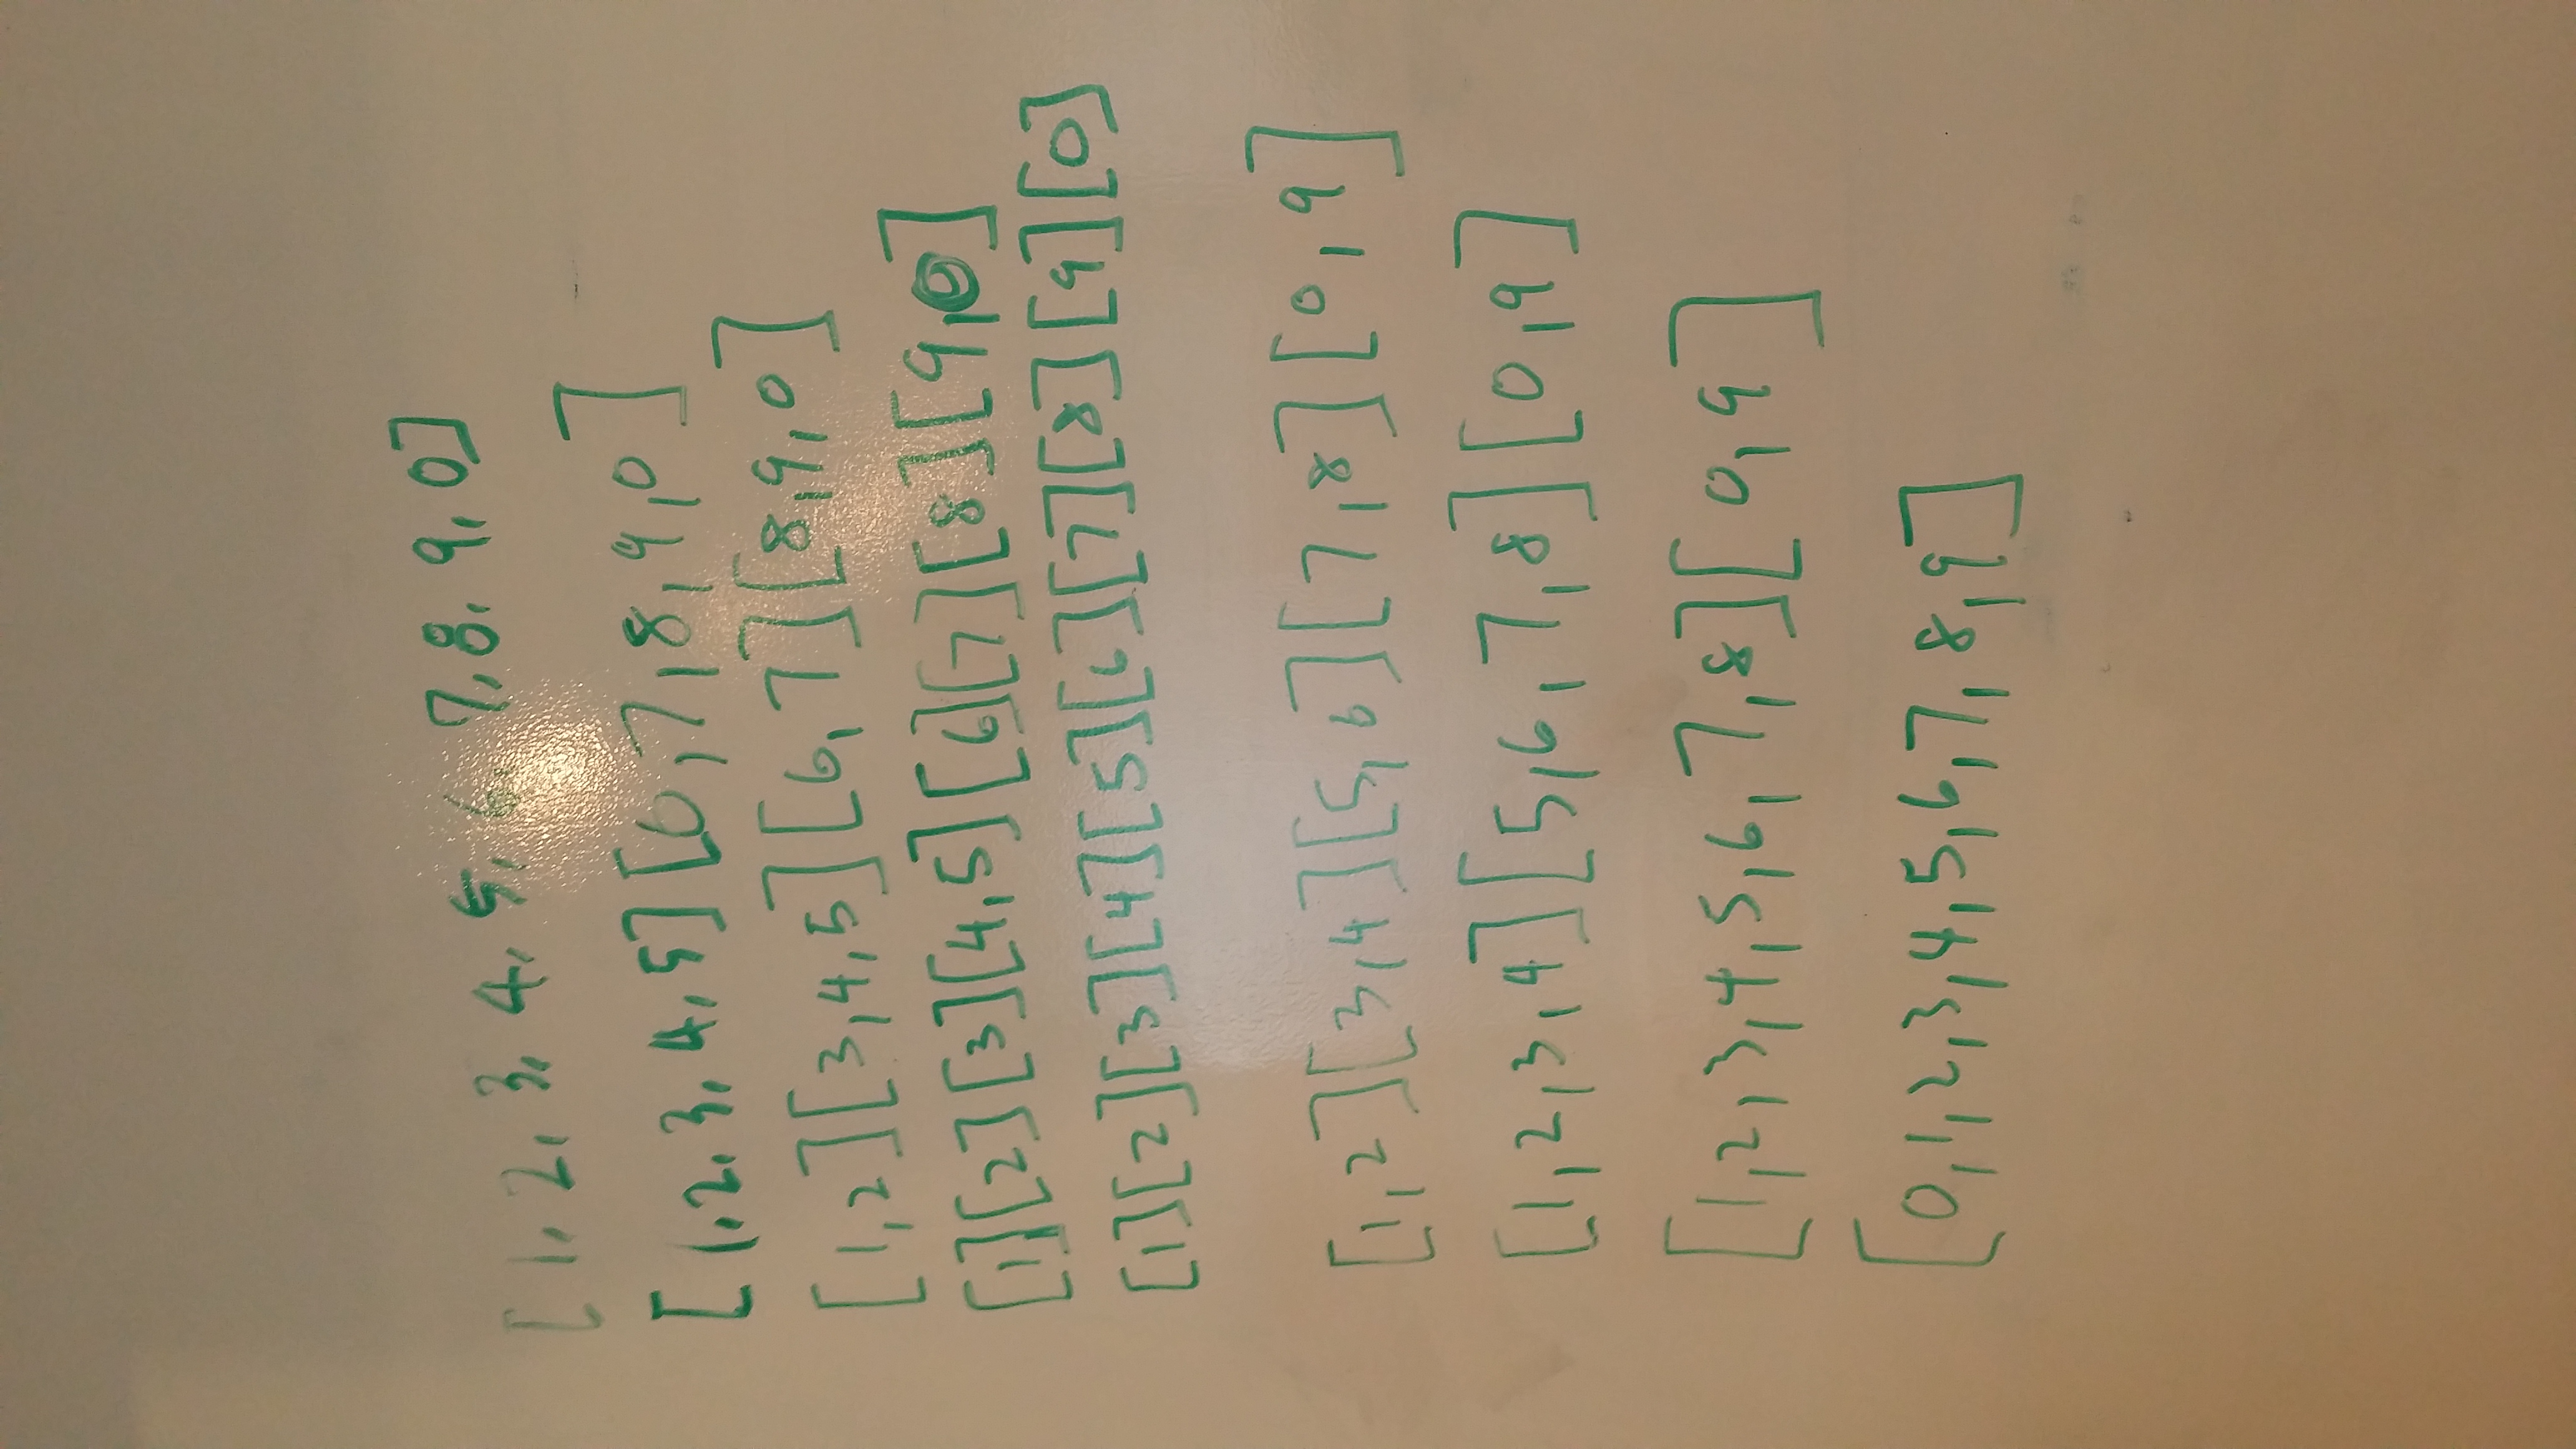 [1, 2, 3, 4, 5, 6, 7, 8, 9, 0]
[1, 2, 3, 4, 5] [6, 7, 8, 9, 0]
[1, 2] [3, 4, 5] [6, 7] [8, 9, 0]
[1] [2] [3] [4, 5] [6] [7] [8] [9, 0]
[1] [2] [3] [4] [5] [6] [7] [8] [9] [0]
[1, 2] [3, 4] [5, 6] [7, 8] [0, 9]
[1, 2, 3, 4] [5, 6, 7, 8] [0, 9]
[1, 2, 3, 4, 5, 6, 7, 8] [0, 9]
[0, 1, 2, 3, 4, 5, 6, 7, 8, 9]